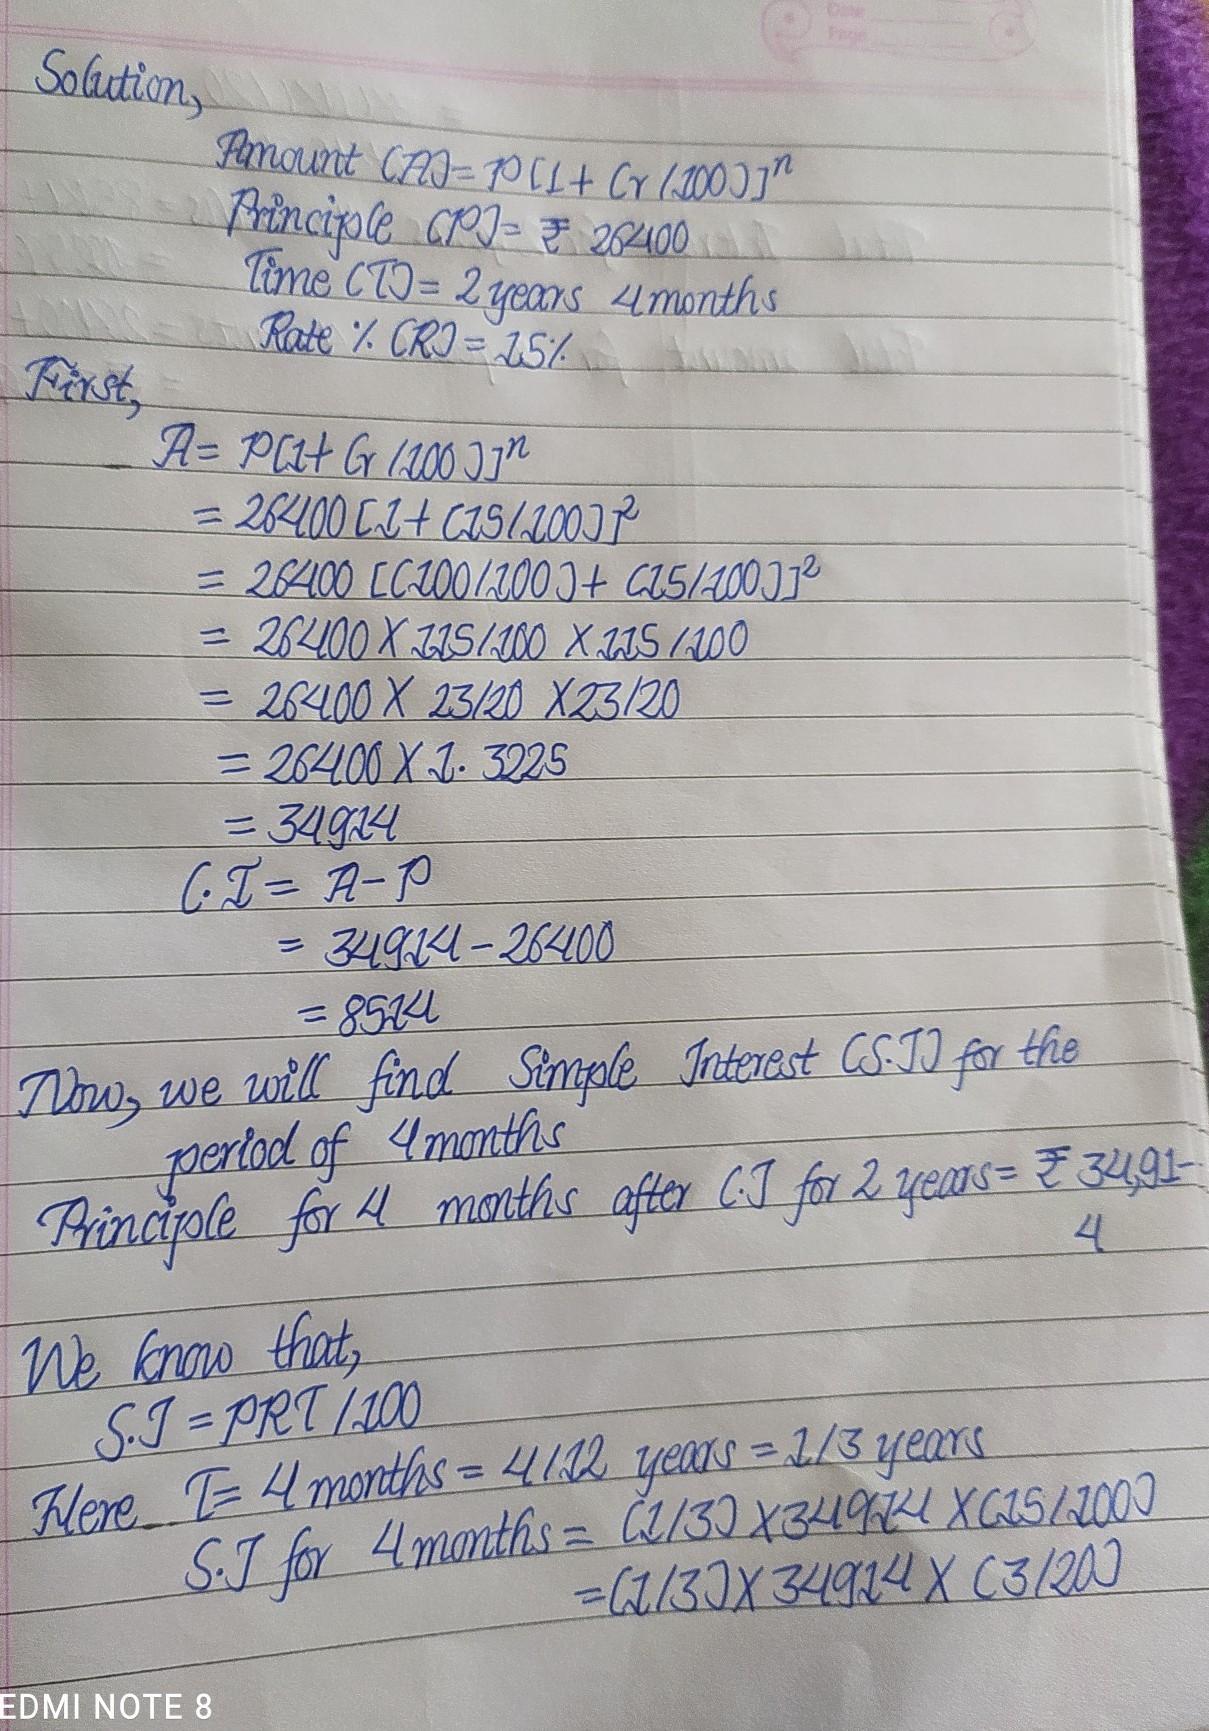 Date
Page
Solution,
Amount (A) = P[1 + (r/100)]ⁿ
Principle (P) = ₹ 26400
Time (T) = 2 years 4 months
Rate % (R) = 15%
First,
A = P[1 + (r/100)]ⁿ
= 26400 [1 + (15/100)]²
= 26400 [(100/100) + (15/100)]²
= 26400 X 115/100 X 115/100
= 26400 X 23/20 X 23/20
= 26400 X 1.3225
= 34914
C.I = A - P
= 34914 - 26400
= 8514
Now, we will find Simple Interest (S.I) for the
period of 4 months
Principle for 4 months after C.I for 2 years = ₹ 34,91-
4
We know that,
S.I = PRT/100
Here T = 4 months = 4/12 years = 1/3 years
S.I for 4 months = (1/3) X 34914 X (15/100)
= (1/3) X 34914 X (3/20)
EDMI NOTE 8